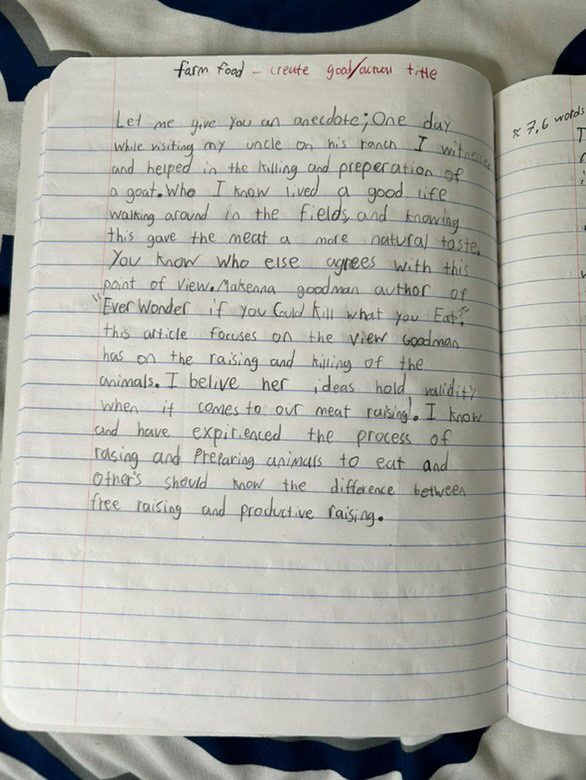 farm food - create good/actual title
Let me give you an anecdote; One day
while visiting my uncle on his ranch I witness
and helped in the killing and preperation of
a goat. Who I know lived a good life
walking around in the fields, and knowing
this gave the meat a more natural taste.
You know who else agrees with this
point of view. Makenna goodman author of
"Ever Wonder if you Could Kill what you Eat?"
this article focuses on the view Goodman
has on the raising and killing of the
animals. I belive her ideas hold validity
when it comes to our meat raising!. I know
and have expirienced the process of
rasing and Preparing animals to eat and
other's should know the difference between
free raising and productive raising.
≈ 7,6 words